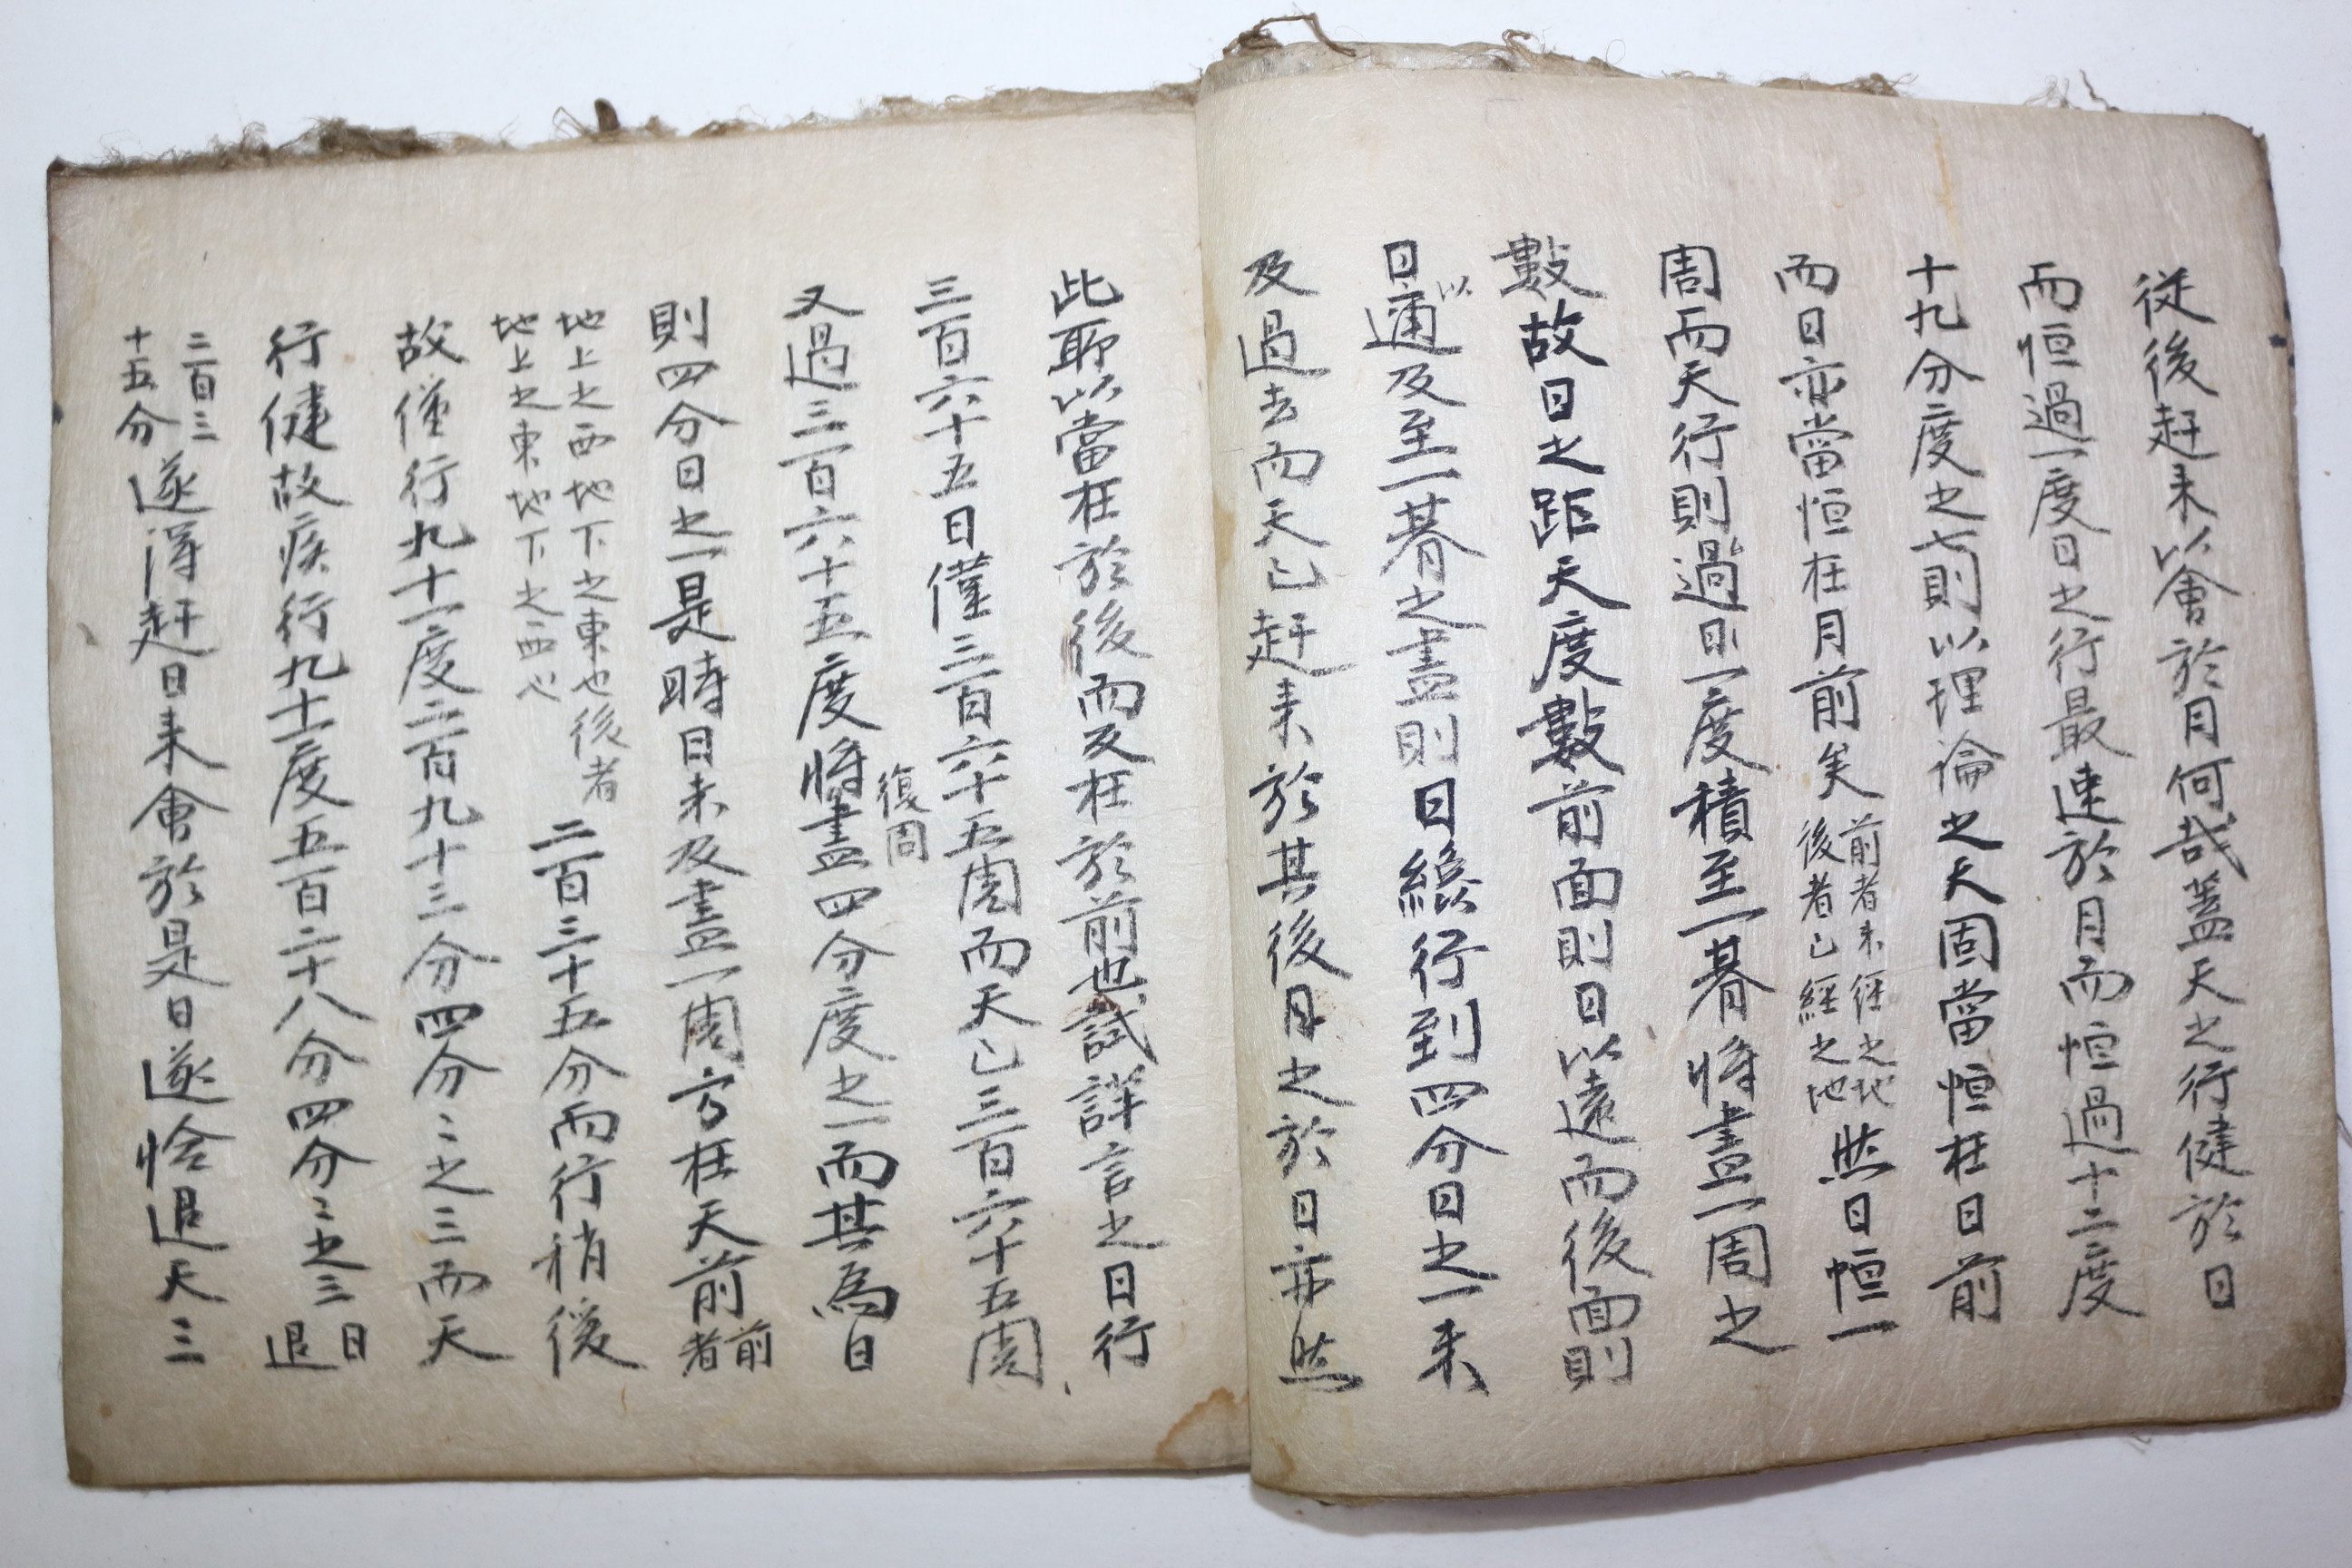 従後赶来以會於月何哉蓋天之行健於日
而恒過一度日之行最速於月而恒過十二度
十九分度之七則以理論之天固當恒在日前
而日亦當恒在月前矣前者未経之地後者已經之地然日恒一
周而天行則過日一度積至一朞將盡一周之
數故日之距天度數前面則日以遠而後面則
日以通及至一朞之盡則日纔行到四分日之一来
及過去而天已赶来於其後月之於日亦然
此耶以當在於後而反在於前也試詳言之日行
三百六十五日僅三百六十五周而天已三百六十五周
又過三百六十五度將復周盡四分度之一而其為日
則四分日之一是時日未及盡一周方在天前前者
地上之西地下之東也後者地上之東地下之西也二百三十五分而行稍後
故僅行九十一度二百九十三分四分〻之三而天
行健故疾行九十二度五百二十八分四分〻之三日退
三百三十五分遂得赶日来會於是日遂恰退天三